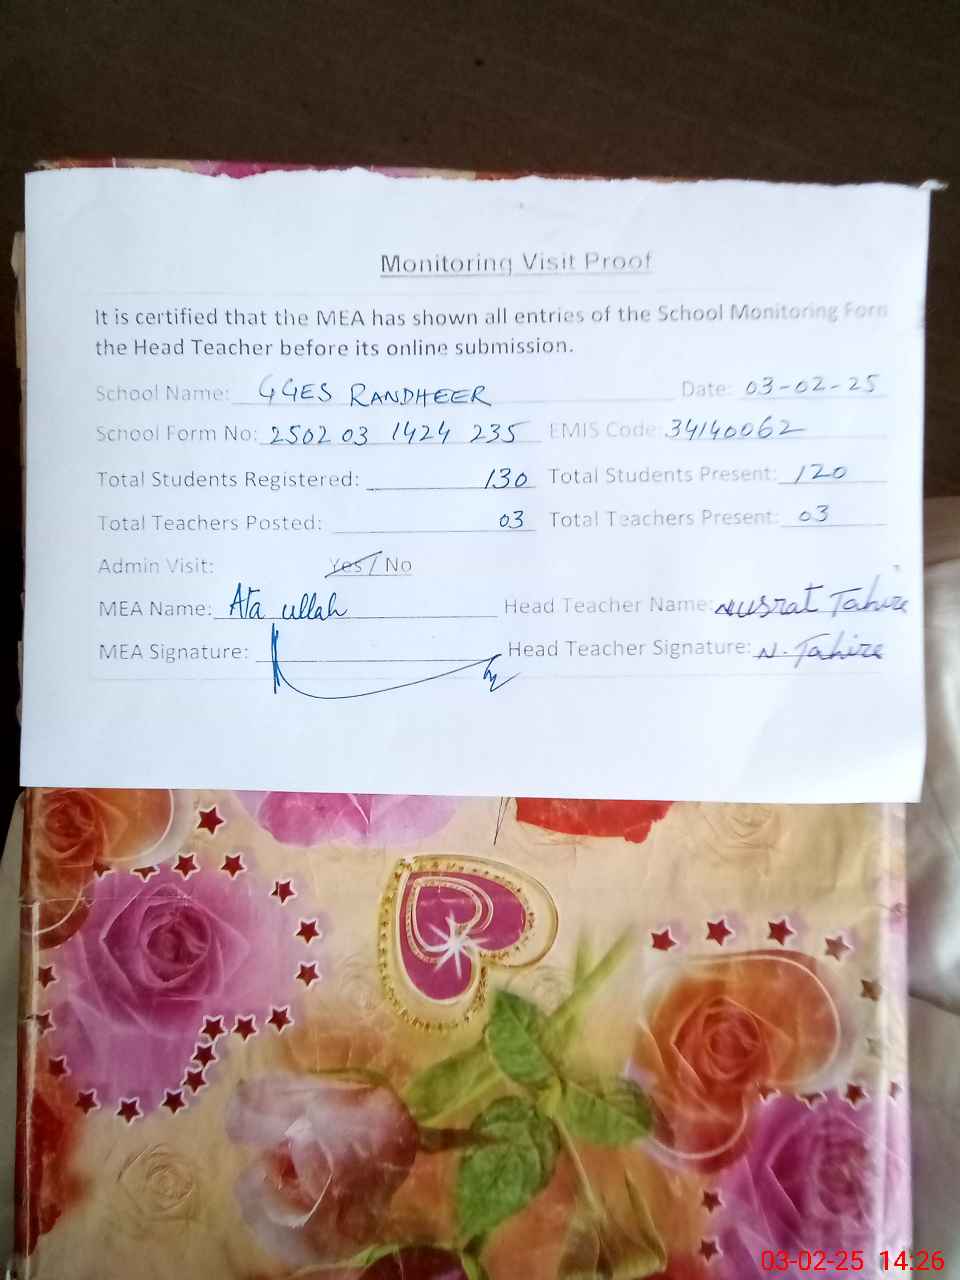 Monitoring Visit Proof
It is certified that the MEA has shown all entries of the School Monitoring Form
the Head Teacher before its online submission.
School Name: GGES RANDHEER Date: 03-02-25
School Form No: 2502 03 1424 235 EMIS Code: 34140062
Total Students Registered: 130 Total Students Present: 120
Total Teachers Posted: 03 Total Teachers Present: 03
Admin Visit: Yes / No
MEA Name: Ata ullah Head Teacher Name: Nusrat Tahira
MEA Signature: Head Teacher Signature: N. Tahira
03-02-25 14:26